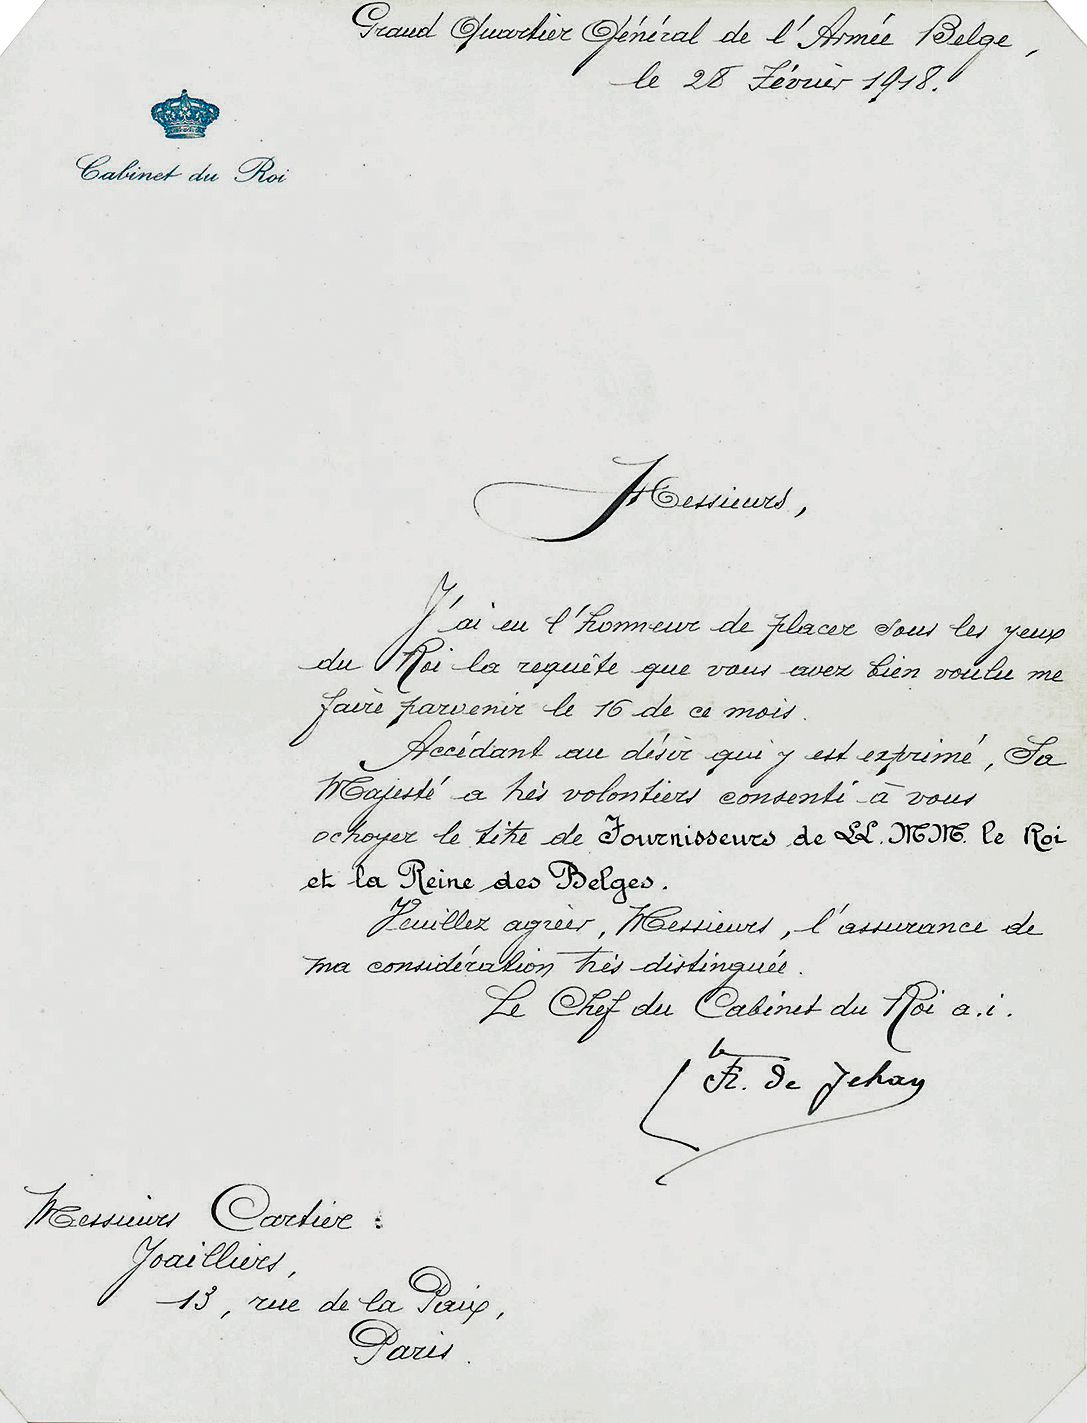 Grand Quartier Général de l'Armée Belge,
le 28 Février 1918.
Cabinet du Roi
Messieurs,
J'ai eu l'honneur de placer sous les yeux
du Roi la requête que vous avez bien voulu me
faire parvenir le 16 de ce mois.
Accédant au désir qui y est exprimé, Sa
Majesté a très volontiers consenti à vous
octroyer le titre de Fournisseurs de LL. MM. le Roi
et la Reine des Belges.
Veuillez agréer, Messieurs, l'assurance de
ma considération très distinguée.
Le Chef du Cabinet du Roi a.i.
Fr. de Jehay
Messieurs Cartier :
Joailliers,
13, rue de la Paix,
Paris.